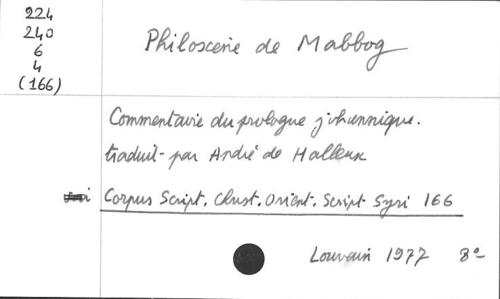 224
240
6
4
(166)
Philoxène de Mabbog
Commentaire du prologue johannique.
traduit par André de Halleux
Corpus Script. Christ. Orient. Script Syri 166
Louvain 1977 8°